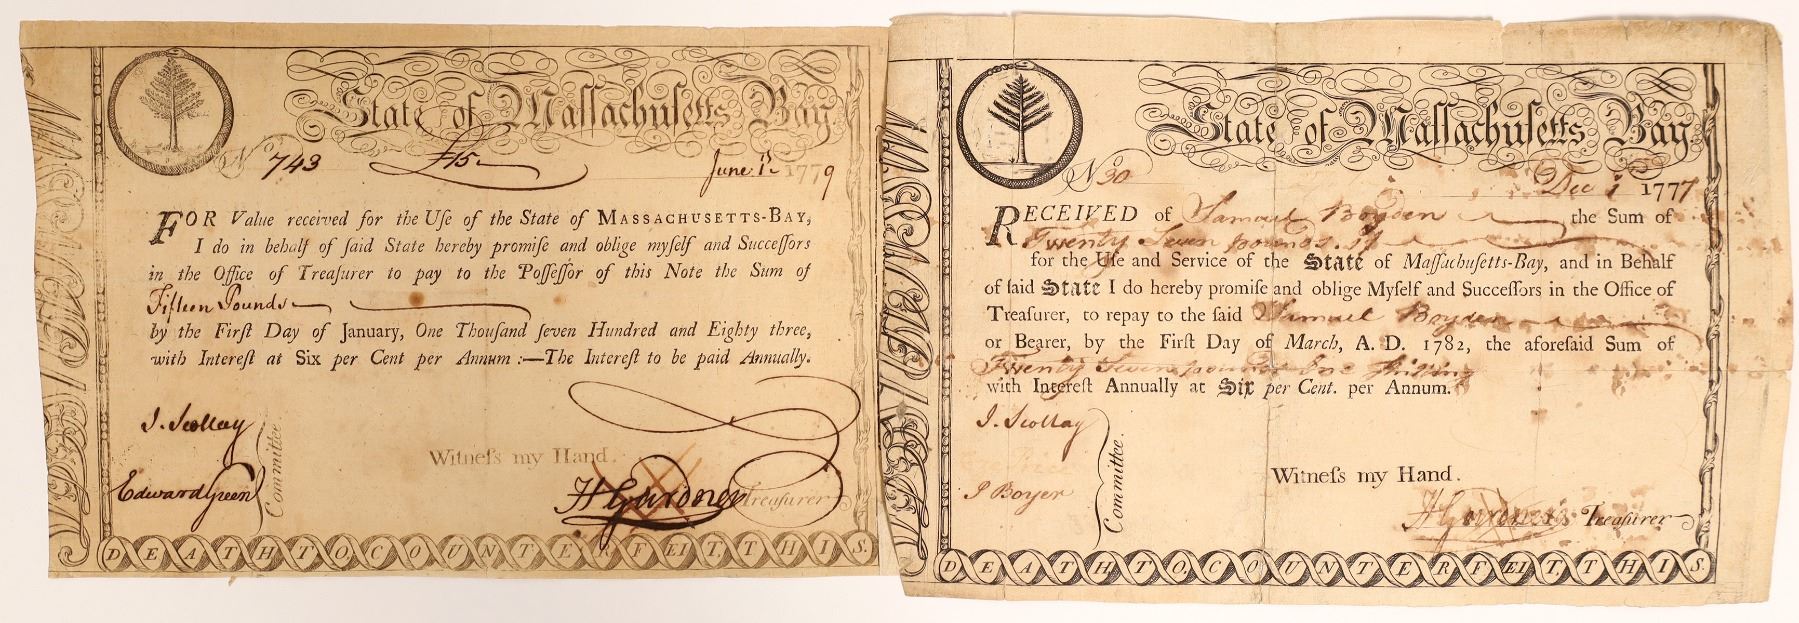 State of Massachusetts Bay
No 743 £15 June 1st 1779
FOR Value received for the Uſe of the State of MASSACHUSETTS-BAY,
I do in behalf of ſaid State hereby promiſe and oblige myſelf and Succeſſors
in the Office of Treaſurer to pay to the Poſſeſſor of this Note the Sum of
Fifteen Pounds
by the Firſt Day of January, One Thouſand ſeven Hundred and Eighty three,
with Intereſt at Six per Cent per Annum :—The Intereſt to be paid Annually.
J. Scollay
Edward Green
Committee
Witneſs my Hand.
H Gardner Treaſurer
DEATH TO COUNTERFEIT THIS.
State of Maſſachuſetts Bay
No 30 Dec 1 1777
RECEIVED of Samuel Boyden the Sum of
Twenty Seven pounds
for the Uſe and Service of the State of Maſſachuſetts-Bay, and in Behalf
of ſaid State I do hereby promiſe and oblige Myſelf and Succeſſors in the Office of
Treaſurer, to repay to the ſaid Samuel Boyden
or Bearer, by the Firſt Day of March, A. D. 1782, the aforeſaid Sum of
Twenty Seven pounds one ſhilling
with Intereſt Annually at Six per Cent. per Annum.
J. Scollay
P Boyer
Committee.
Witneſs my Hand.
H Gardner Treaſurer
DEATH TO COUNTERFEIT THIS.